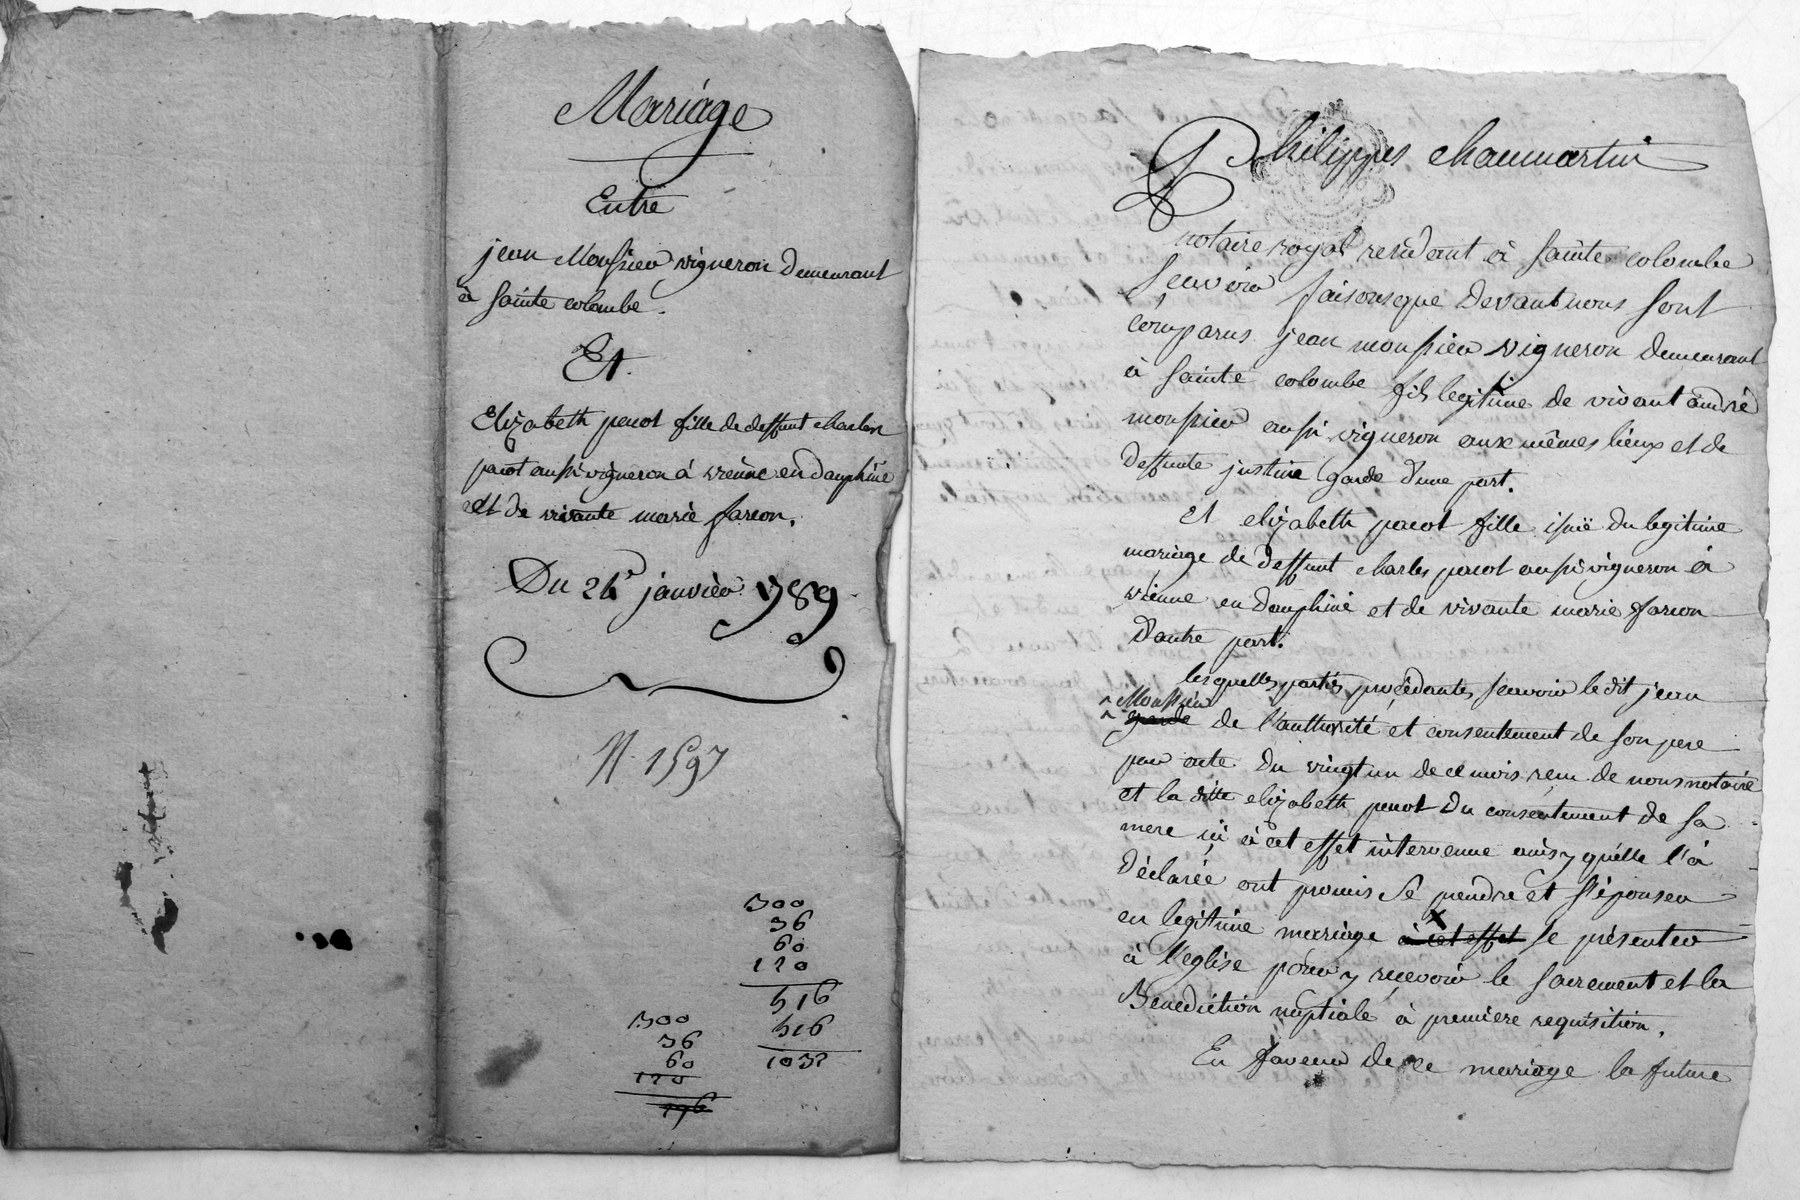 Mariage
Entre
jean Monssieu vigneron demeurant
à sainte colombe.
Et
Elizabeth pacot fille de deffunt charles
pacot aussi vigneron à vienne en dauphiné
et de vivante marie farcon.
Du 24e janvier 1789
N. 1597
300
36
60
120
516
516
1032
300
36
60
120
196
Philippes chaumartin
notaire royal residant à sainte colombe
scavoir faisons que devant nous sont
comparus jean monssieu vigneron demeurant
à sainte colombe fils legitime de vivant andré
monssieu aussi vigneron aux mêmes lieux et de
deffunte justine garde d'une part.
et elizabeth pacot fille issuë du legitime
mariage de deffunt charles pacot aussi vigneron à
vienne en dauphiné et de vivante marie farcon
d'autre part.
lesquelles parties procédantes scavoir le dit jean
Monssieu
garde de l'authorité et consentement de son pere
par acte du vingt un de ce mois recu de nous notaire
et la ditte elizabeth pacot du consentement de sa
mere ici à cet effet intervenue ainsy qu'elle l'a
déclarée ont promis se prendre et s'épouser
en legitime mariage à cet effet se présenter
à l'eglise pour y recevoir le sacrement et la
Benediction nuptiale à premiere requisition.
En faveur de ce mariage la future